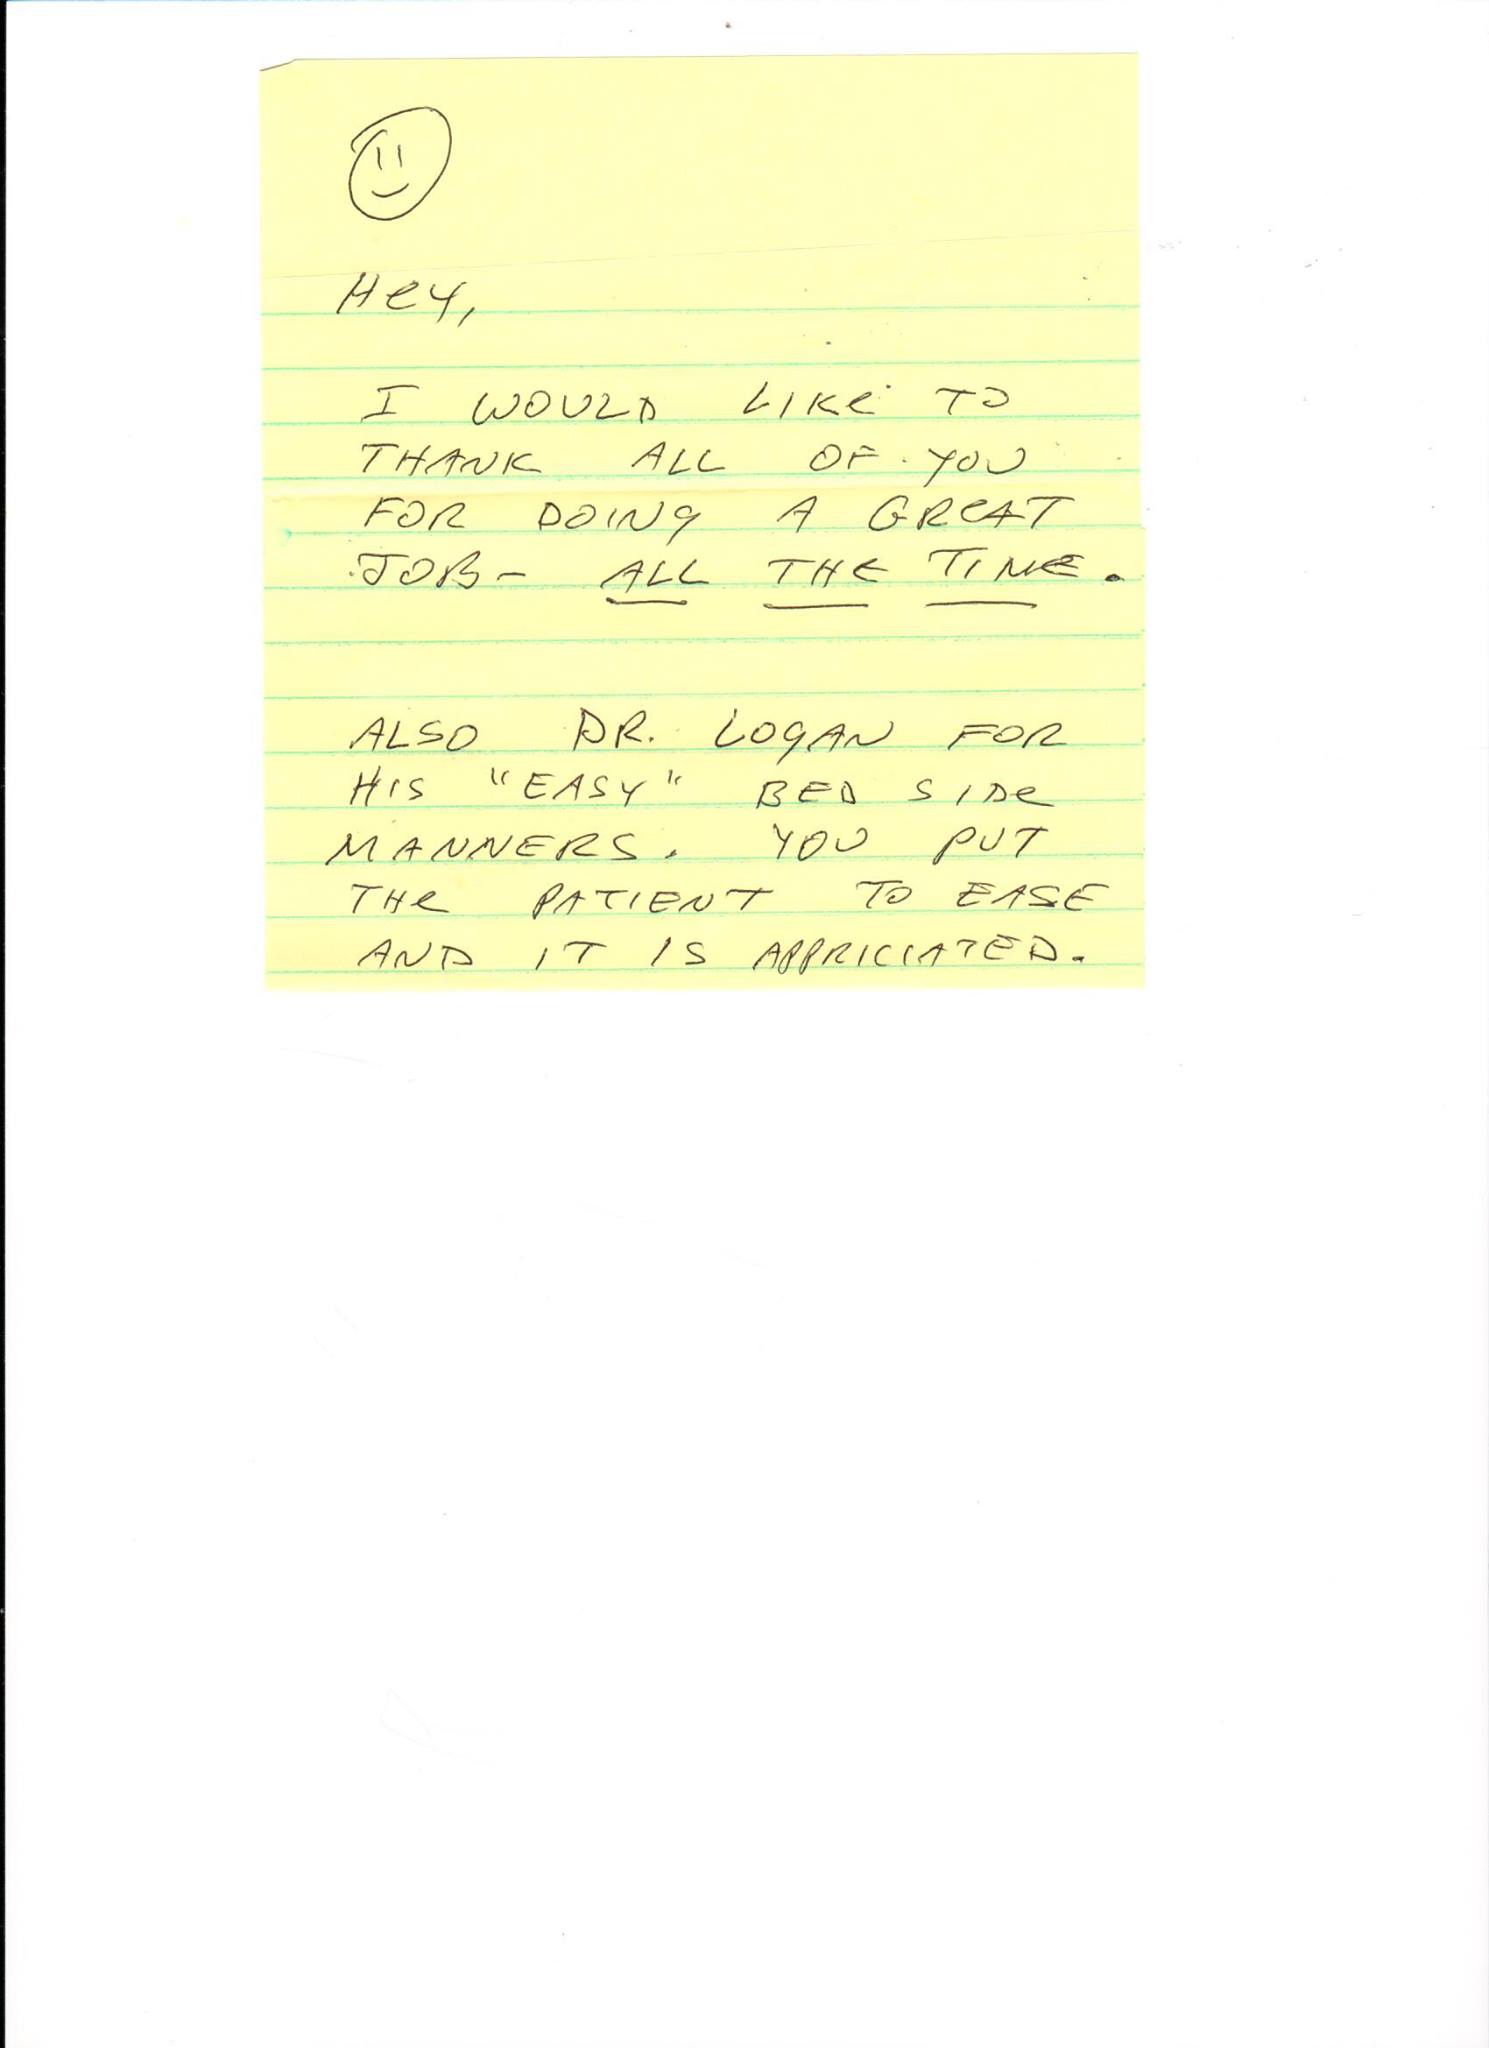 Hey,
I WOULD LIKe TO
THANK ALL OF YOU
FOR DOING A GREAT
JOB- ALL THE TIME.
ALSO DR. LOGAN FOR
HIS "EASY" BED SIDe
MANNERS. YOU PUT
THe PATIENT TO EASE
AND IT IS APPRICIATED.